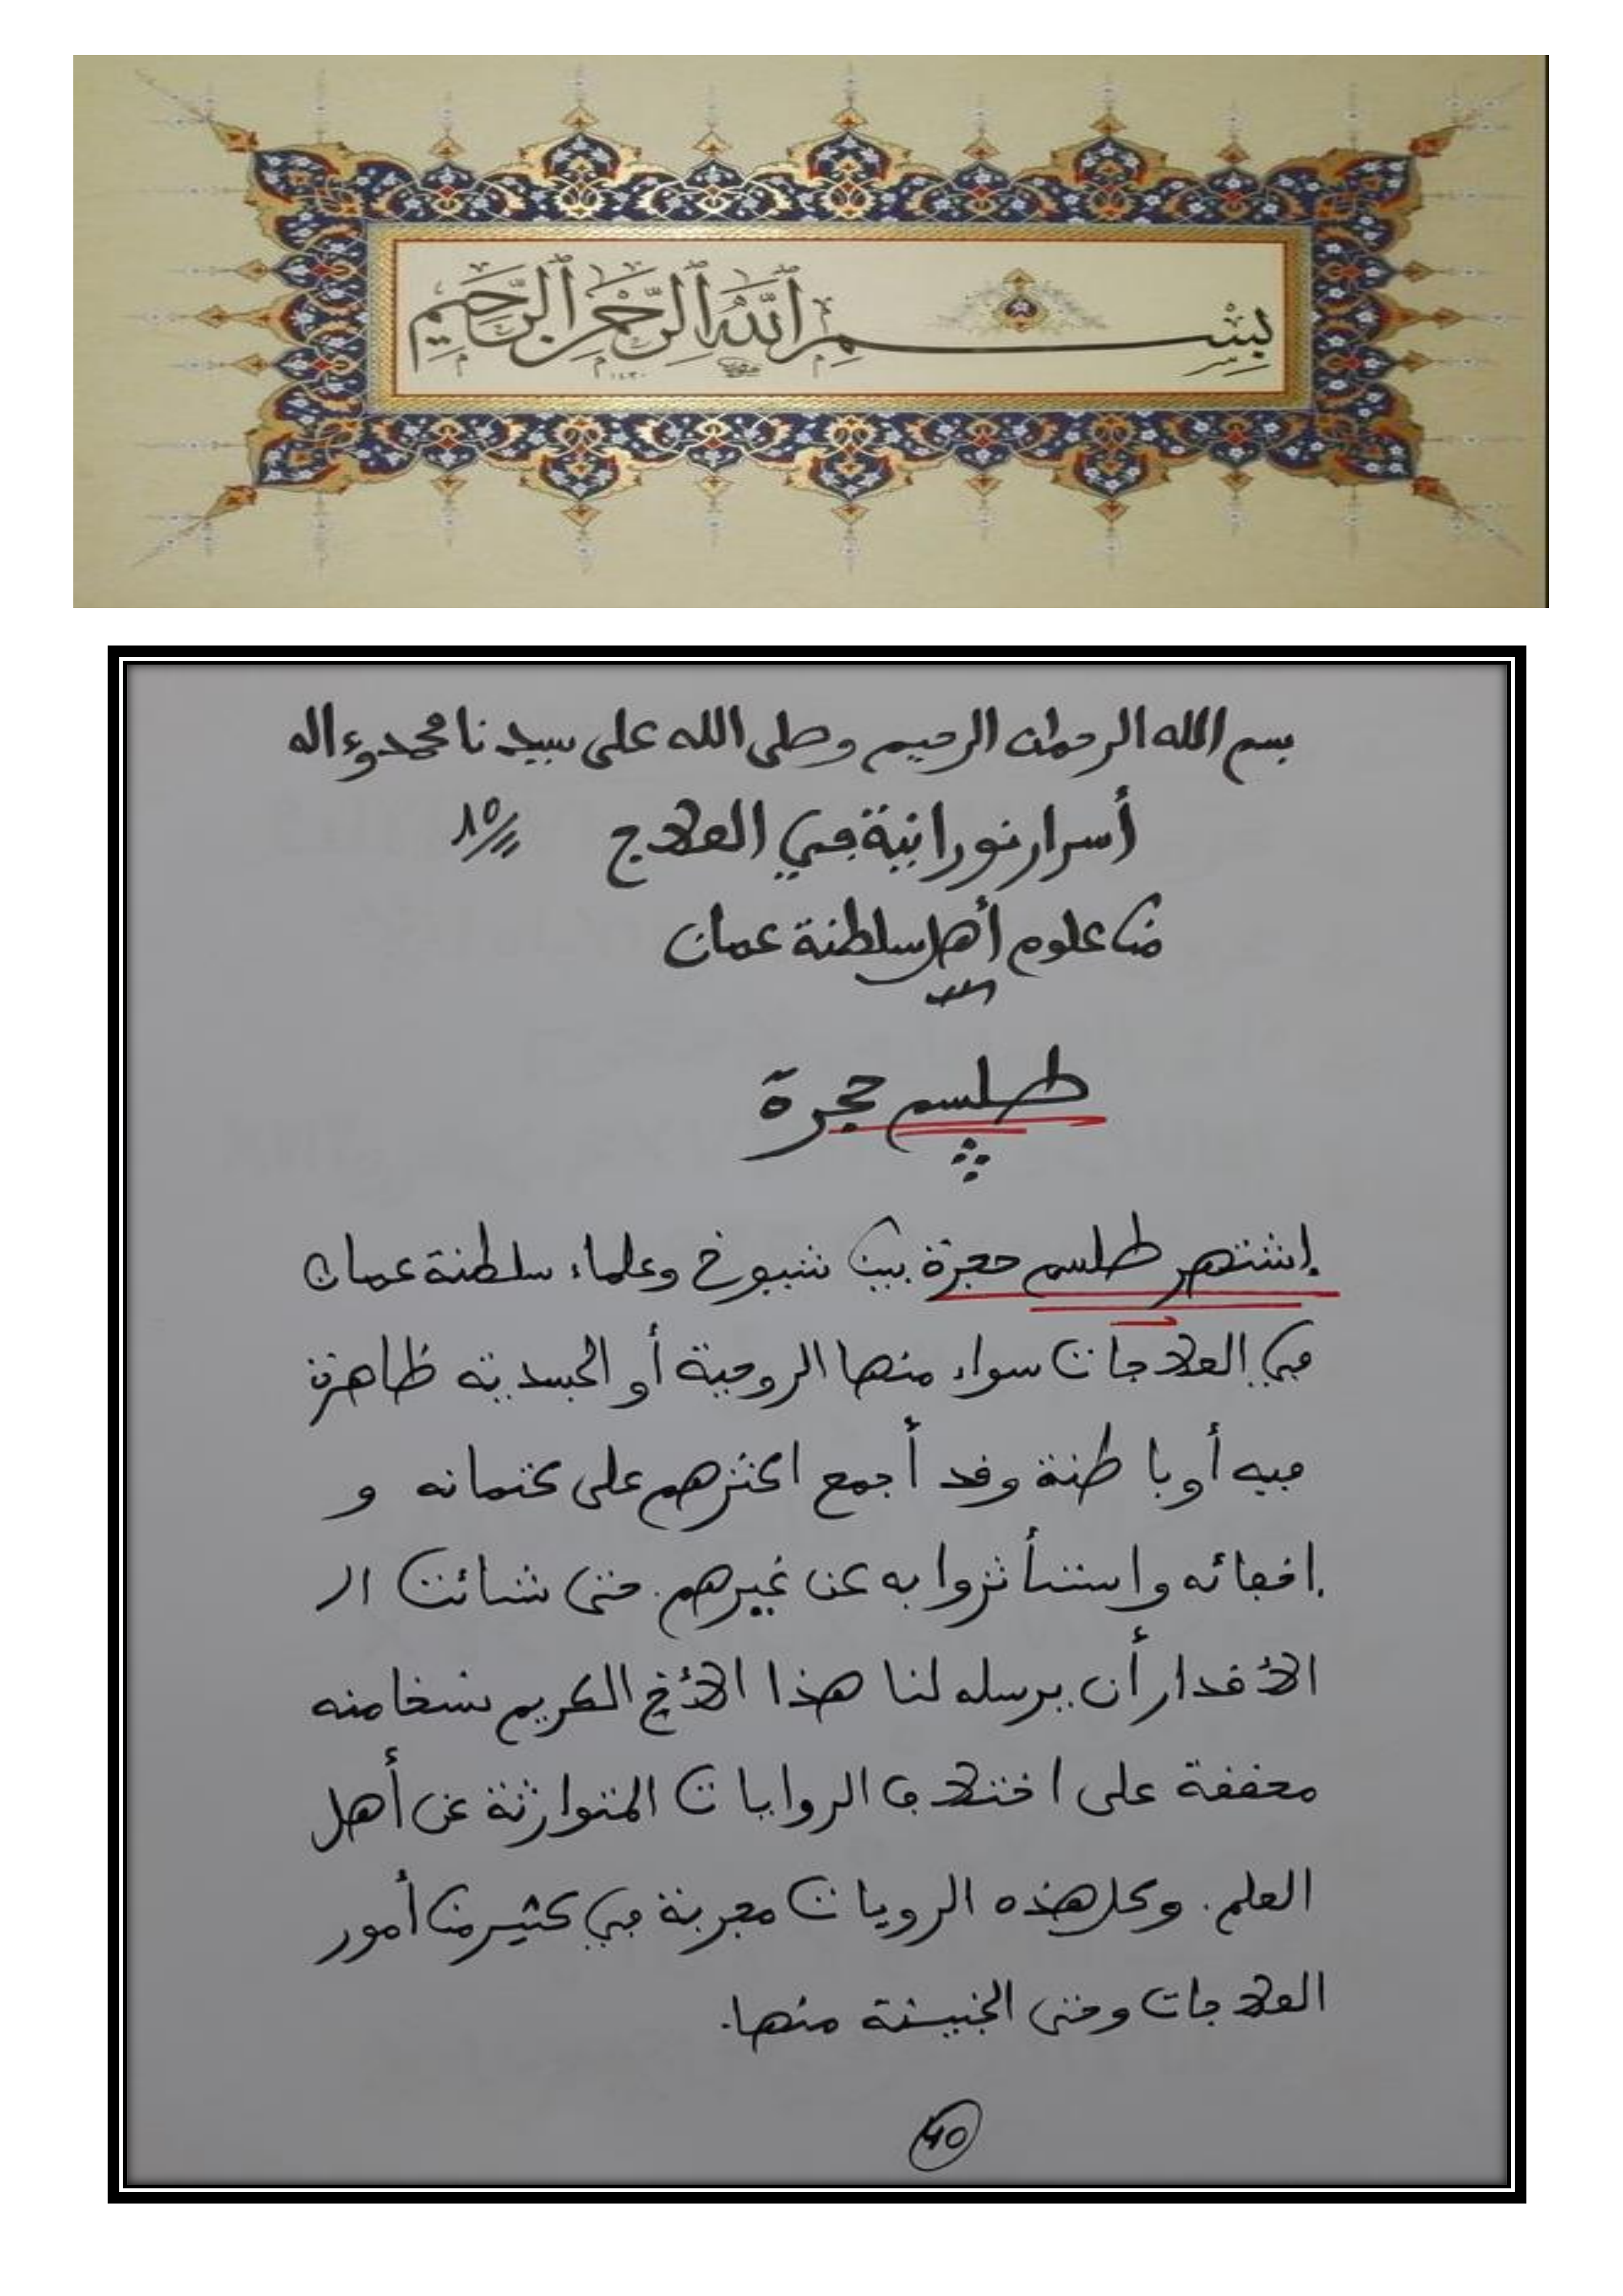 بِسْمِ ٱللَّهِ ٱلرَّحْمَٰنِ ٱلرَّحِيمِ
١٤٣٠
بسم الله الرحمان الرحيم وصلى الله على سيدنا محمد وءاله
أسرار نورانية في العلاج ١٥
من علوم أهل سلطنة عمان
طلسم حجرة
إشتهر طلسم حجرة بين شيوخ وعلماء سلطنة عمان
في العلاجات سواء منها الروحية أو الجسدية ظاهرة
فيه أو باطنة وقد أجمع اكثرهم على كتمانه و
إخفائه واستأثروا به عن غيرهم. حتى شائت ال
الأقدار أن يرسله لنا هذا الأخ الكريم نسخا منه
محققة على اختلاف الروايات المتوارثة عن أهل
العلم. وكل هذه الرويات مجربة في كثير من أمور
العلاجات وحتى الخبيثة منها.
40